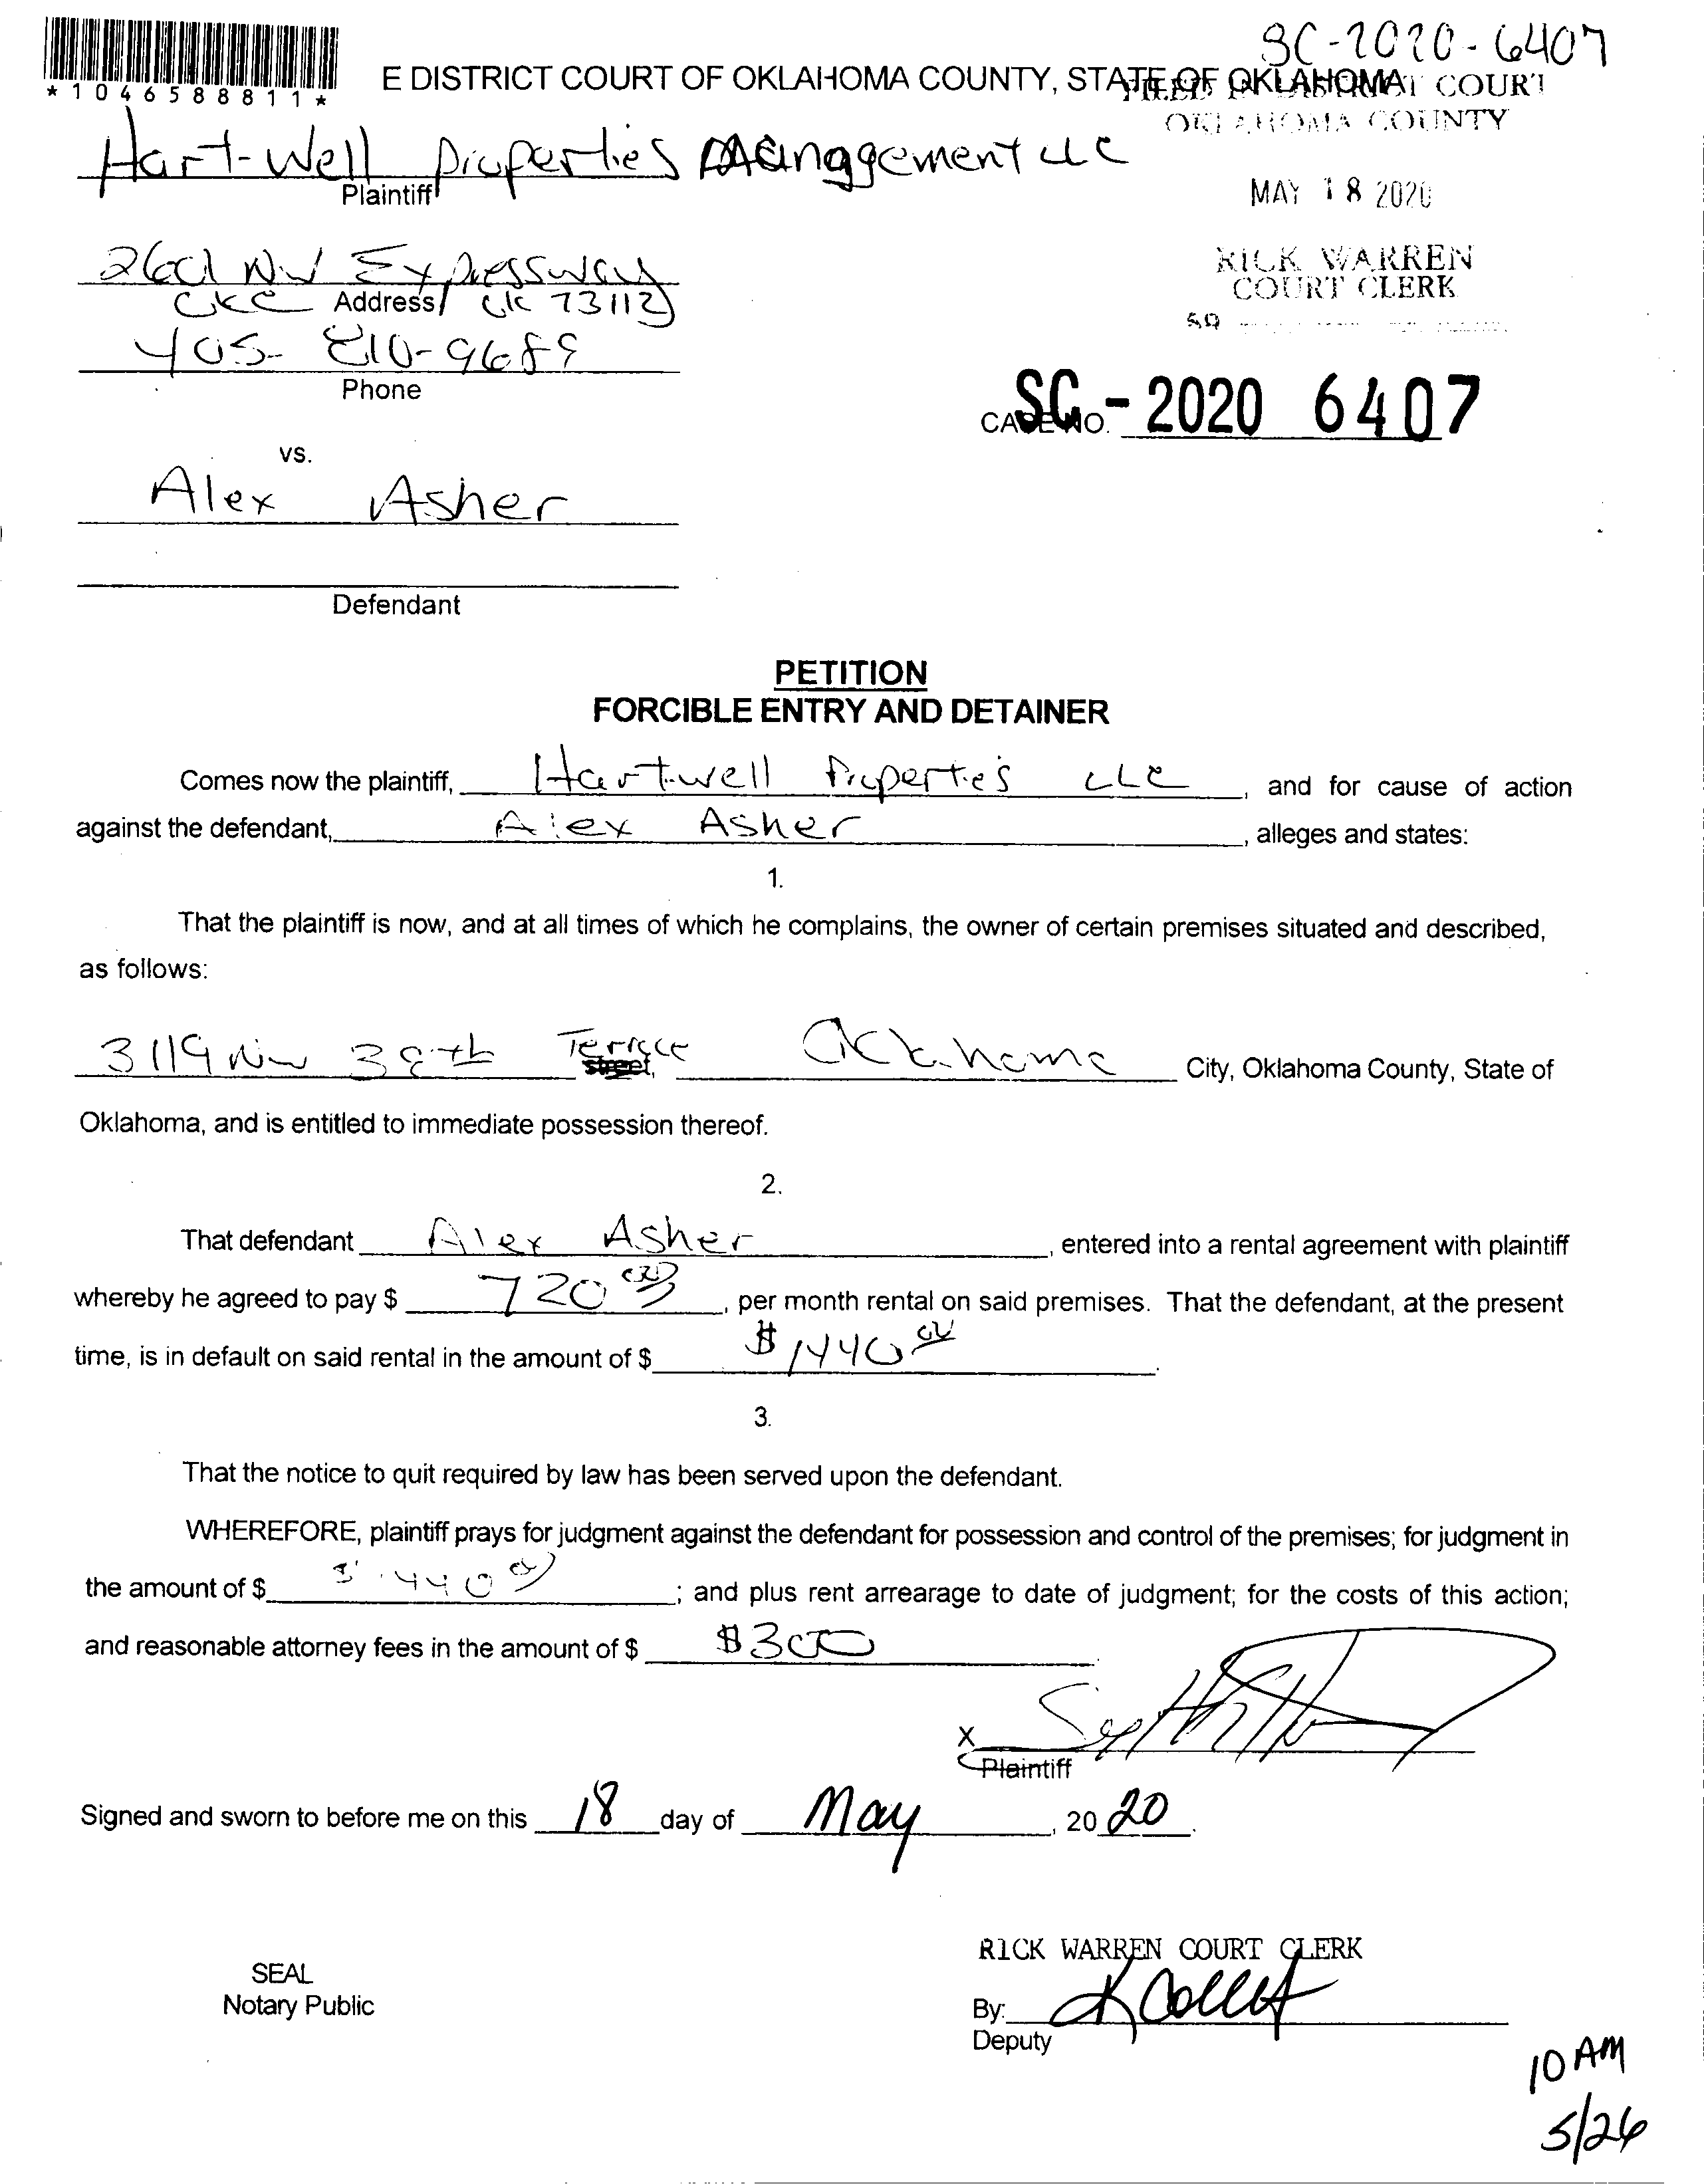 SC-2020-6407
*1046588811*
E DISTRICT COURT OF OKLAHOMA COUNTY, STATE OF OKLAHOMA
FILED IN DISTRICT COURT
OKLAHOMA COUNTY
Hart-Well Properties Management LLC
Plaintiff
MAY 18 2020
2601 NW Expressway
OKC Address OK 73112
RICK WARREN
COURT CLERK
405-810-9689
Phone
CASE NO. SC-2020 6407
vs.
Alex Asher
Defendant
PETITION
FORCIBLE ENTRY AND DETAINER
Comes now the plaintiff, Hartwell Properties LLC, and for cause of action
against the defendant, Alex Asher, alleges and states:
1.
That the plaintiff is now, and at all times of which he complains, the owner of certain premises situated and described,
as follows:
3119 NW 38th Terrace street, Oklahoma City, Oklahoma County, State of
Oklahoma, and is entitled to immediate possession thereof.
2.
That defendant Alex Asher, entered into a rental agreement with plaintiff
whereby he agreed to pay $ 720 00, per month rental on said premises. That the defendant, at the present
time, is in default on said rental in the amount of $ $1440 00.
3.
That the notice to quit required by law has been served upon the defendant.
WHEREFORE, plaintiff prays for judgment against the defendant for possession and control of the premises; for judgment in
the amount of $ $1440 00; and plus rent arrearage to date of judgment; for the costs of this action;
and reasonable attorney fees in the amount of $ $300.
X
Plaintiff
Signed and sworn to before me on this 18 day of May, 20 20.
RICK WARREN COURT CLERK
SEAL
Notary Public
By:
Deputy
10 AM
5/26